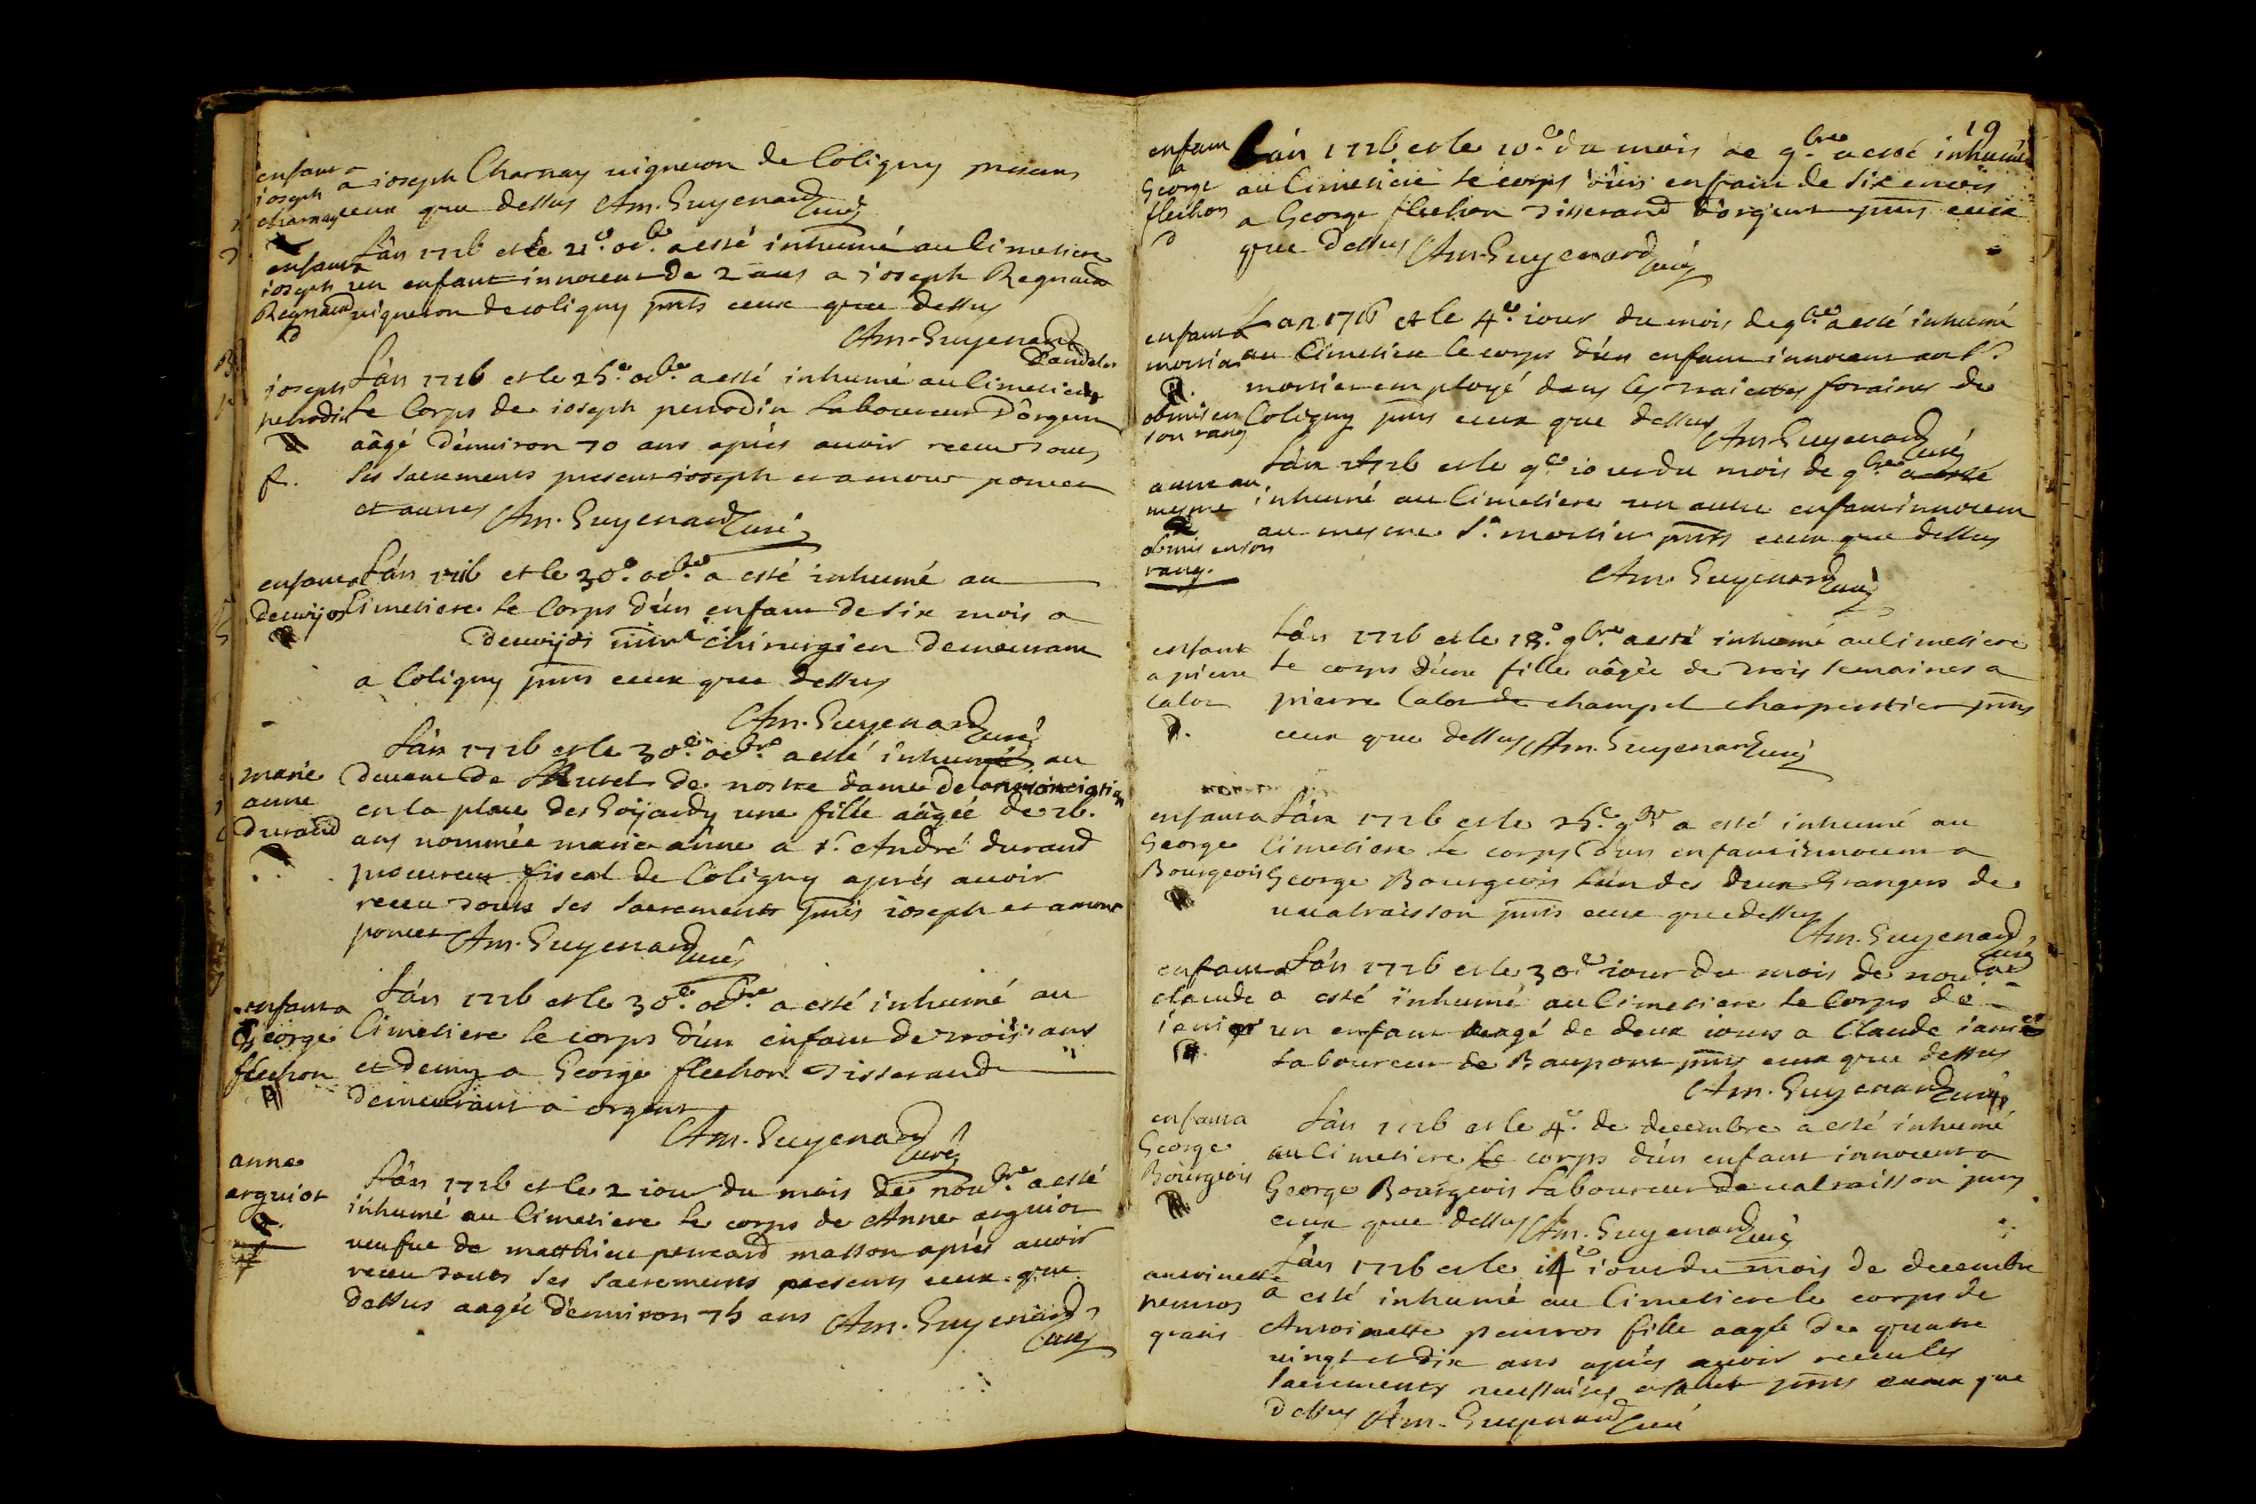 enfant a
joseph
charnay
a joseph Charnay vigneron de Coligny presens
ceux que dessus Am. Guyenard curé
enfant a
joseph
Regnaud
L'an 1726 et le 21e. octbre. a esté inhumé au Cimetiere
un enfant innocent de 2 ans a joseph Regnaud
vigneron de coligny pnts ceux que dessus
Am. Guyenard
joseph
perrodin
L'an 1726 et le 25e. octbre. a esté inhumé au Cimetiere
le Corps de joseph perrodin Laboureur D'orgent
aâgé d'environ 70 ans après avoir receu tous
ses sacrements present joseph et amour poncet
et autres Am. Guyenard curé
enfant a
devijos
L'an 1726 et le 30e. octbre. a esté inhumé au
Cimetiere le Corps d'un enfant de six mois a
devijos chirurgien demeurant
a Coligny pnts ceux que dessus
Am. Guyenard curé
marie
anne
durand
L'an 1726 et le 30e. octbre. a esté inhumé au
devant de l'Autel de nostre dame de
en la place des Goÿardy une fille aâgée de 26.
ans nommée marie anne a sr. André durand
procureur fiscal de Coligny après avoir
receu tous ses sacrements pnts joseph et amour
poncet Am. Guyenard curé
enfant a
George
flechon
L'an 1726 et le 30e. octbre a esté inhumé au
Cimetiere le corps d'un enfant de trois ans
et demy a George flechon Tisserand
demeurant a orgent
Am. Guyenard curé
anne
arguiot
L'an 1726 et le 2 jour du mois de novbre a esté
inhumé au Cimetiere le corps de Anne arguiot
veufve de matthieu masson après avoir
receu tous ses sacrements presents ceux que
dessus aagée d'environ 75 ans Am. Guyenard
curé
19
enfant
a
George
flechon
L'an 1726 et le 10e. du mois de 9bre a esté inhumé
au Cimetiere le corps d'un enfant de six
a George flechon Tisserand d'orgent pnts ceux
que dessus Am. Guyenard curé
enfant a
mortier
obmis en
son rang
L'an 1726 et le 4e. jour du mois de 9bre a esté inhumé
au Cimetiere le corps d'un enfant innocent au Sr.
mortier employé dans les traittes foraines de
Coligny pnts ceux que dessus
Am. Guyenard curé
autre au
mesme
obmis en son
rang.
L'an 1726 et le 9e jour du mois de 9bre a esté
inhumé au Cimetiere un autre enfant innocent
au mesme Sr. mortier pnts ceux que dessus
Am. Guyenard curé
enfant
a pierre
Calot
L'an 1726 et le 18e. 9bre a esté inhumé au Cimetiere
le corps d'une fille aâgée de trois semaines a
pierre Calot de champel charpentier pnts
ceux que dessus Am. Guyenard curé
enfant a
George
Bourgeois
L'an 1726 et le 25e. 9bre a esté inhumé au
Cimetiere le corps d'un enfant innocent a
George Bourgeois l'un des deux Grangers de
pnts ceux que dessus
Am. Guyenard curé
enfant a
claude
L'an 1726 et le 30e jour du mois de novbre
a esté inhumé au Cimetiere le Corps de
un enfant aagé de deux jours a Claude
Laboureur de Beaupont pnts ceux que dessus
Am. Guyenard curé
enfant a
George
Bourgeois
L'an 1726 et le 4e. de decembre a esté inhumé
au Cimetiere le corps d'un enfant innocent a
George Bourgeois Laboureur de pnts
ceux que dessus Am. Guyenard curé
antoinette
gratis
L'an 1726 et le 14e jour du mois de decembre
a esté inhumé au Cimetiere le corps de
Antoinette fille aagée de quatre
vingt et dix ans après avoir receu les
sacrements pnts ceux que
dessus Am. Guyenard curé